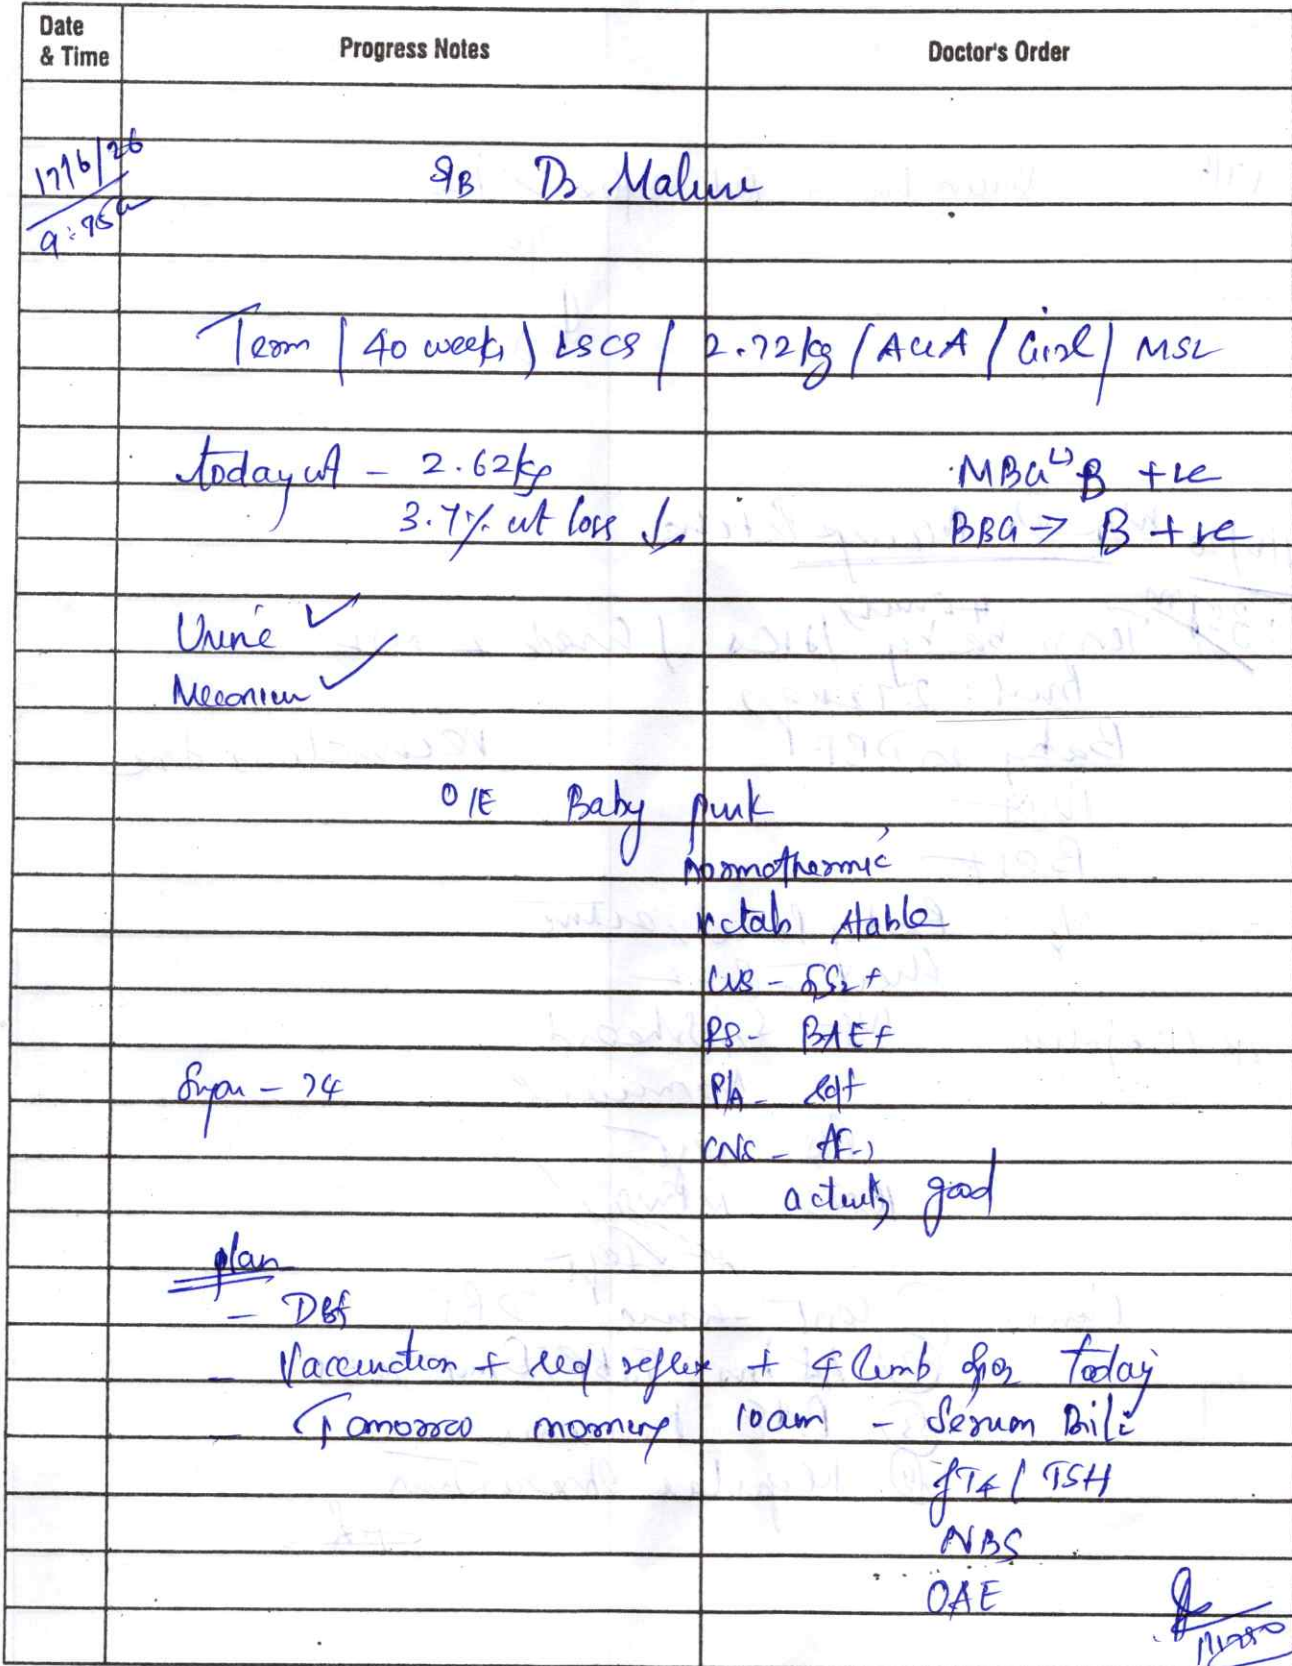 Date & Time Progress Notes Doctor's Order
17/6/26 S/B Dr
9:45a
Term / 40 weeks / LSCS / 2.72kg / AGA / Girl / MSL
today wt - 2.62kg MBG B +ve
3.7% wt loss ↓ BBG → B +ve
Urine ✓
Meconium ✓
O/E Baby pink
normothermic
vitals stable
CVS - S1S2+
RS - BAE+
P/A - soft
CNS - AF
activity good
plan
- DBF
- Vaccination + red reflex + 4 limb today
- Tomorrow morning 10am - Serum Bili
fT4 / TSH
NBS
OAE